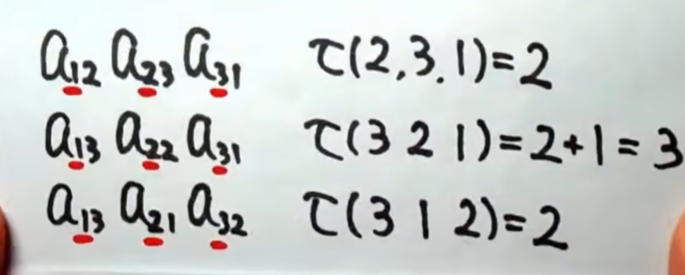 a₁₂ a₂₃ a₃₁ τ(2,3,1)=2
a₁₃ a₂₂ a₃₁ τ(3 2 1)=2+1=3
a₁₃ a₂₁ a₃₂ τ(3 1 2)=2